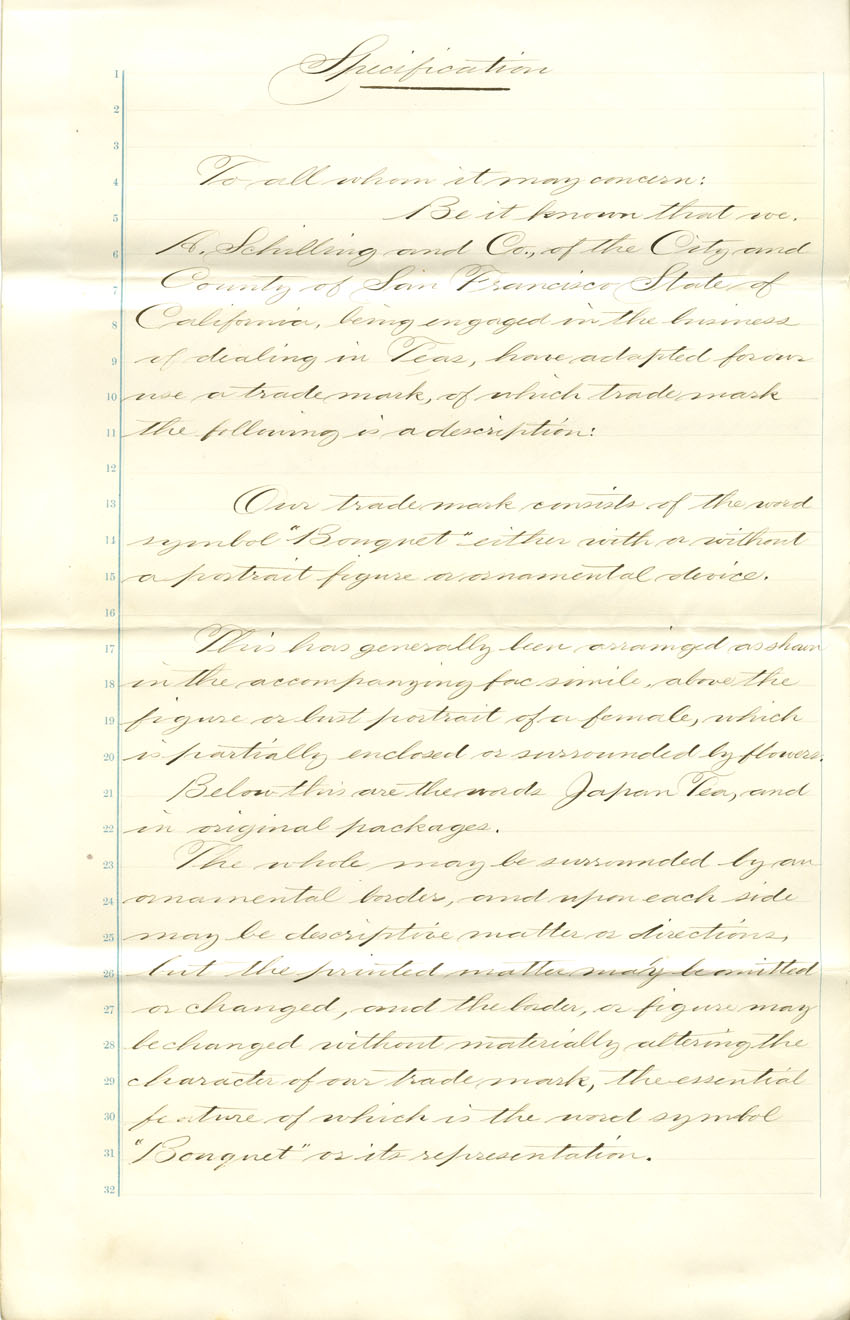 Specification
1
2
3
4 To all whom it may concern:
5 Be it known that we,
6 A. Schilling and Co., of the City and
7 County of San Francisco State of
8 California, being engaged in the business
9 of dealing in Teas, have adapted for our
10 use a trade mark, of which trade mark
11 the following is a description:
12
13 Our trade mark consists of the word
14 symbol "Bouquet" either with or without
15 a portrait figure or ornamental device.
16
17 This has generally been arrainged as shown
18 in the accompanying fac simile, above the
19 figure or bust portrait of a female, which
20 is partially enclosed or surrounded by flowers.
21 Below this are the words Japan Tea, and
22 in original packages.
23 The whole may be surrounded by an
24 ornamental border, and upon each side
25 may be descriptive matter or directions,
26 but the printed matter may be omitted
27 or changed, and the border, or figure may
28 be changed without materially altering the
29 character of our trade mark, the essential
30 feature of which is the word symbol
31 "Bouquet" or its representation.
32